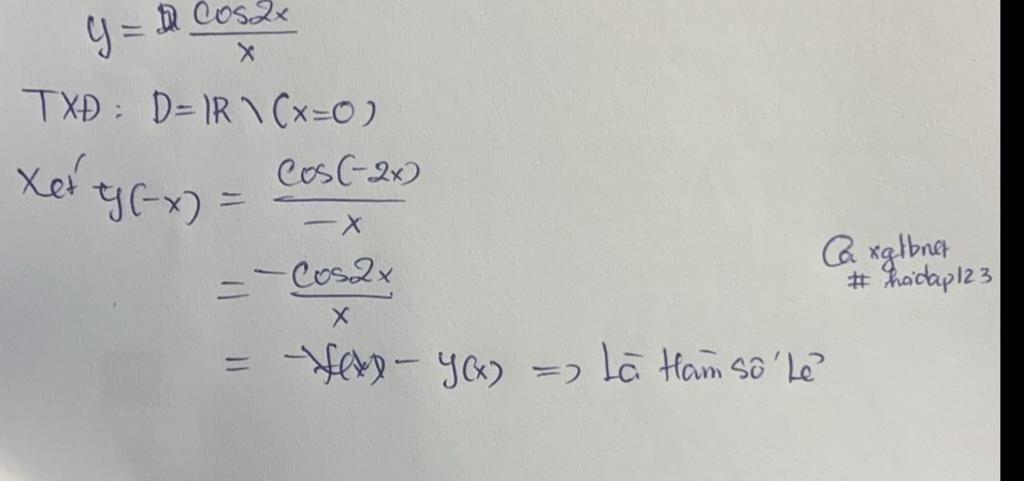 y = cos2x / x
TXĐ: D=R \ (x=0)
Xét y(-x) = cos(-2x) / -x
= -cos2x / x
= - y(x) => Là Hàm số lẻ
@ xgtbnet
# hoidap123